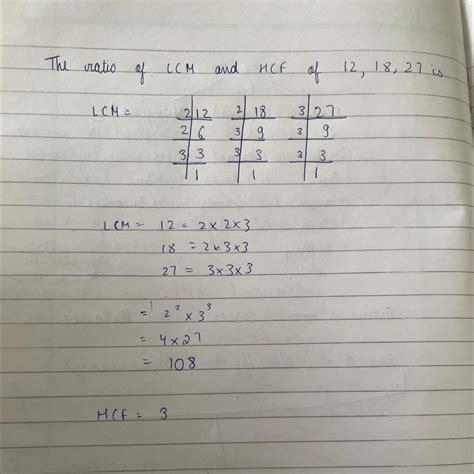 The ratio of LCM and HCF of 12, 18, 27 is
LCM = 2 12 2 18 3 27
2 6 3 9 3 9
3 3 3 3 3 3
1 1 1
LCM = 12 = 2×2×3
18 = 2×3×3
27 = 3×3×3
= 2² × 3³
= 4×27
= 108
HCF = 3